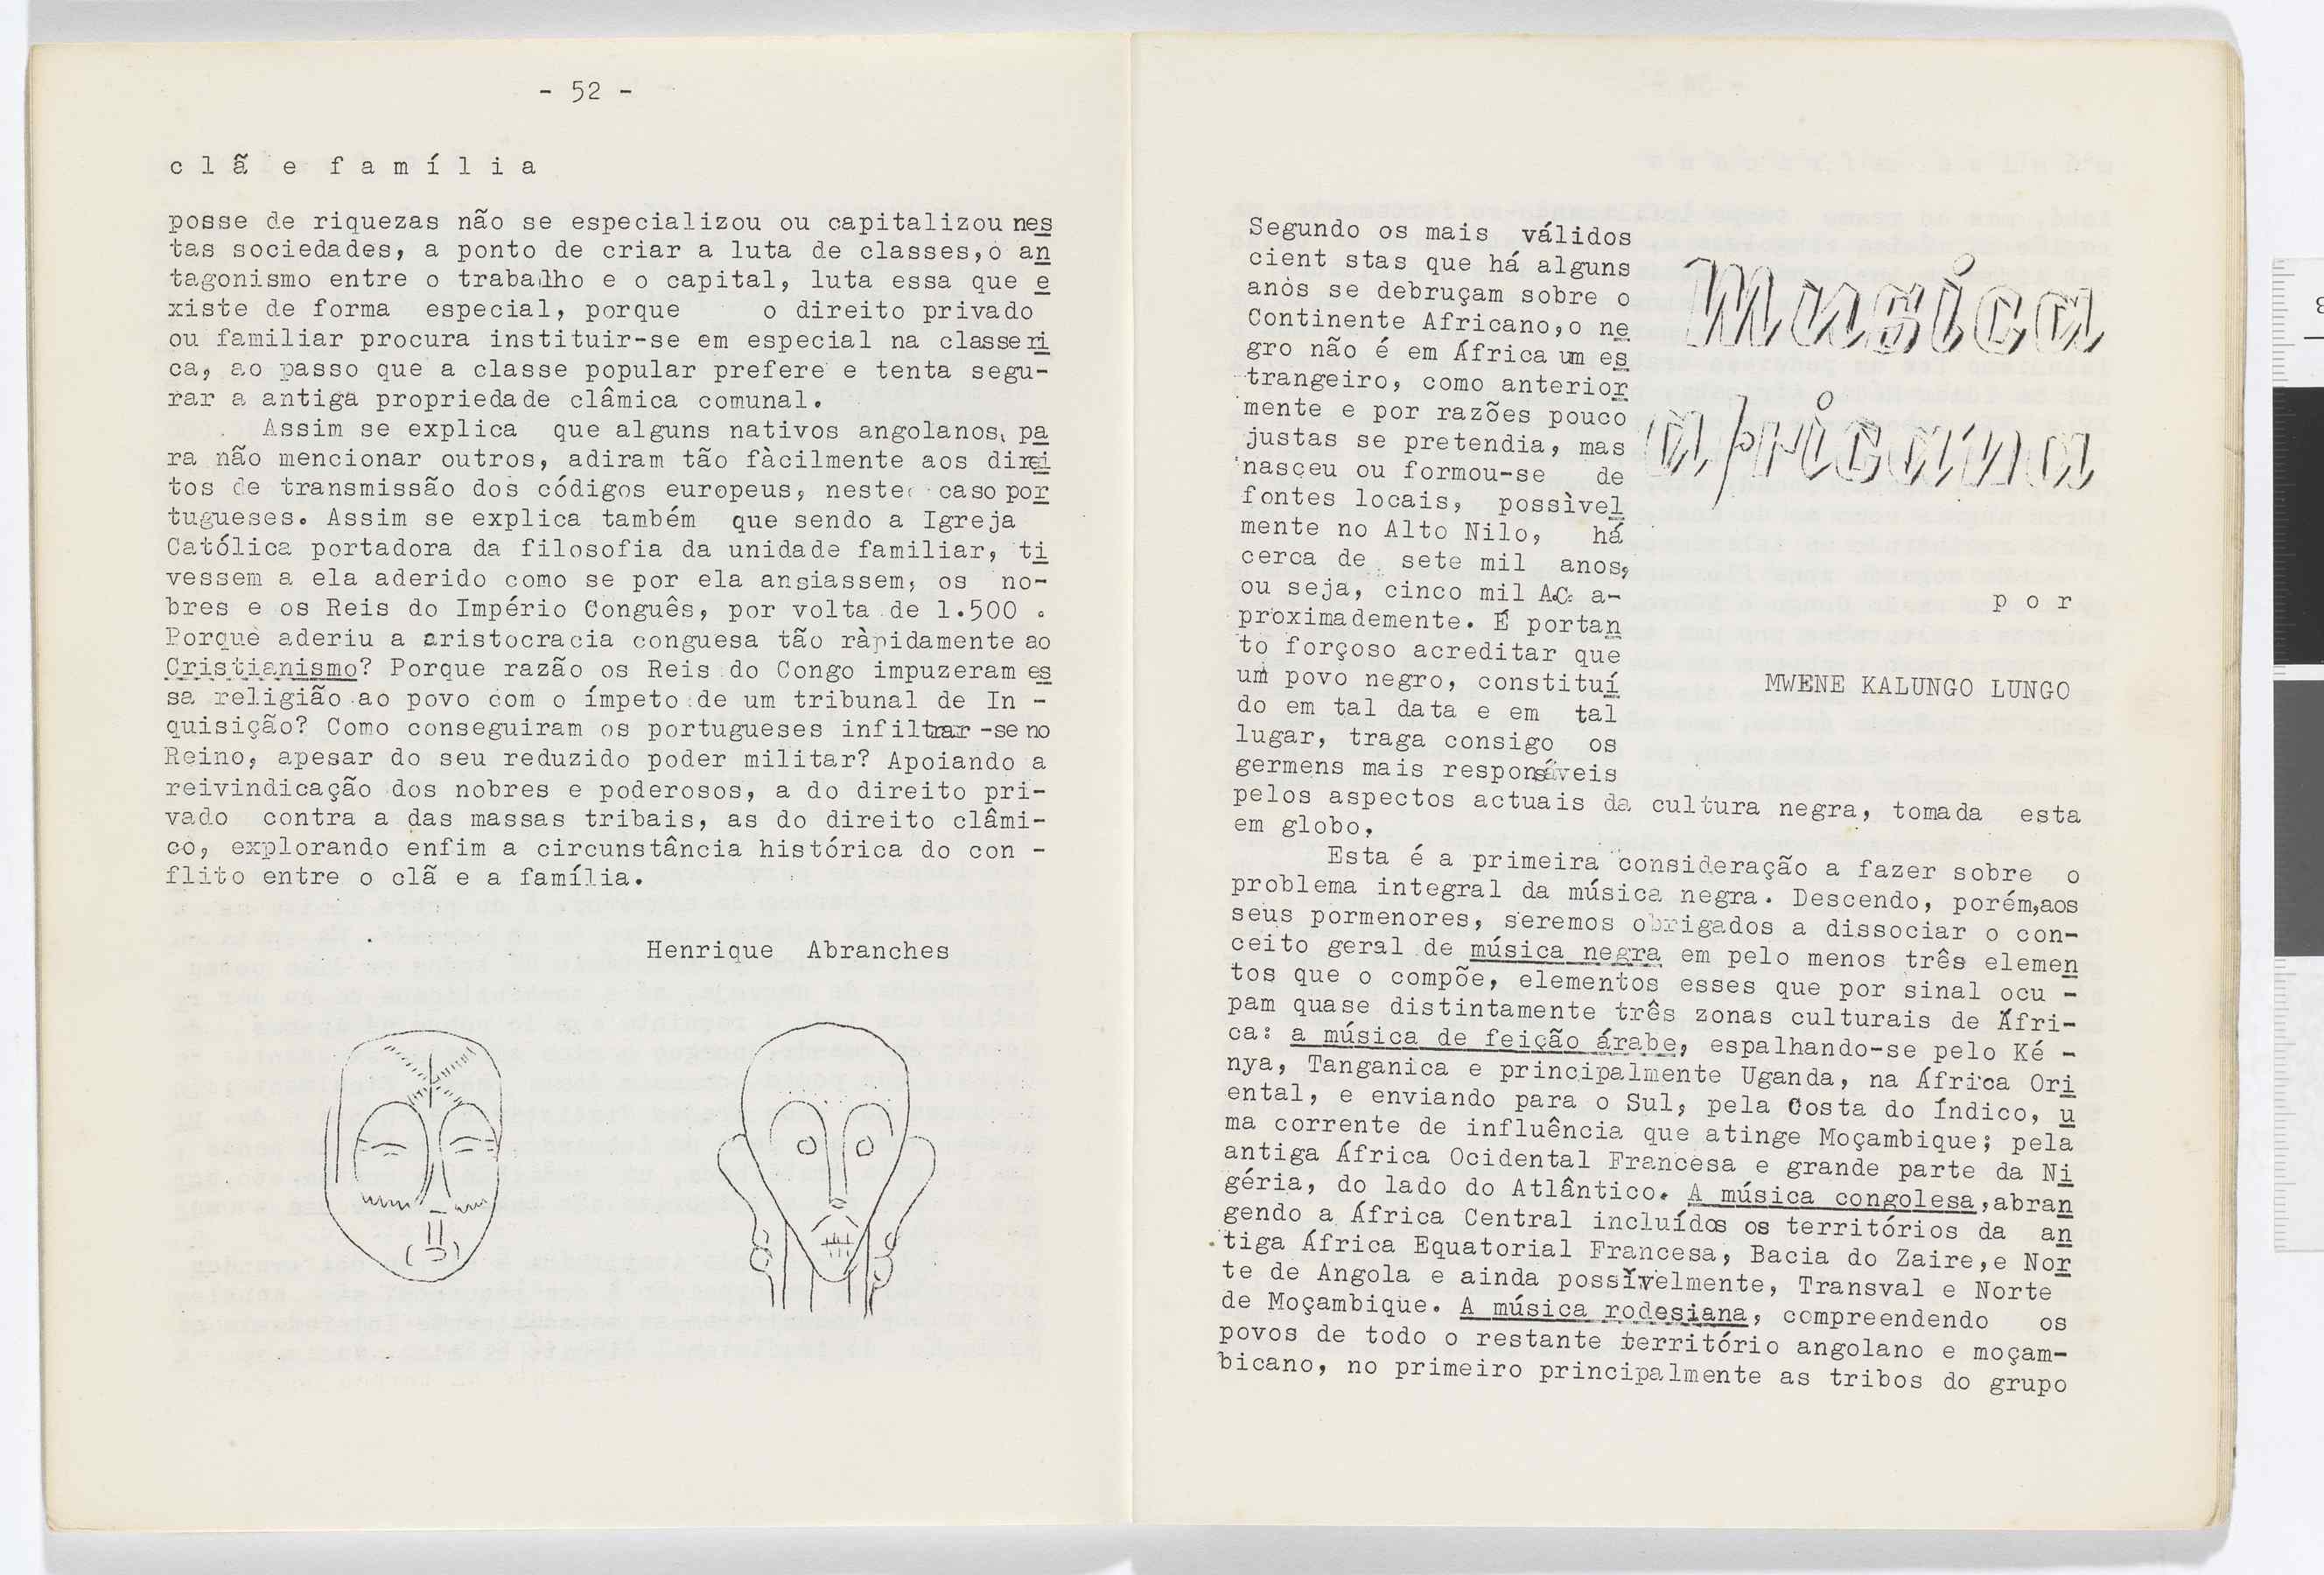 - 52 -
c l ã e f a m í l i a
posse de riquezas não se especializou ou capitalizou nes
tas sociedades, a ponto de criar a luta de classes,o an
tagonismo entre o trabalho e o capital, luta essa que e
xiste de forma especial, porque o direito privado
ou familiar procura instituir-se em especial na classe ri
ca, ao passo que a classe popular prefere e tenta segu-
rar a antiga propriedade clâmica comunal.
Assim se explica que alguns nativos angolanos, pa
ra não mencionar outros, adiram tão fàcilmente aos direi
tos de transmissão dos códigos europeus, neste caso por
tugueses. Assim se explica também que sendo a Igreja
Católica portadora da filosofia da unidade familiar, ti
vessem a ela aderido como se por ela ansiassem, os no-
bres e os Reis do Império Conguês, por volta de 1.500 .
Porquè aderiu a aristocracia conguesa tão ràpidamente ao
Cristianismo? Porque razão os Reis do Congo impuzeram es
sa religião ao povo com o ímpeto de um tribunal de In -
quisição? Como conseguiram os portugueses infiltrar-se no
Reino, apesar do seu reduzido poder militar? Apoiando a
reivindicação dos nobres e poderosos, a do direito pri-
vado contra a das massas tribais, as do direito clâmi-
co, explorando enfim a circunstância histórica do con -
flito entre o clã e a família.
Henrique Abranches
Musica
africana
por
MWENE KALUNGO LUNGO
Segundo os mais válidos
cient stas que há alguns
anos se debruçam sobre o
Continente Africano,o ne
gro não é em África um es
trangeiro, como anterior
mente e por razões pouco
justas se pretendia, mas
nasceu ou formou-se de
fontes locais, possìvel
mente no Alto Nilo, há
cerca de sete mil anos,
ou seja, cinco mil A.C. a-
proximademente. É portan
to forçoso acreditar que
um povo negro, constituí
do em tal data e em tal
lugar, traga consigo os
germens mais responsáveis
pelos aspectos actuais da cultura negra, tomada esta
em globo,
Esta é a primeira consideração a fazer sobre o
problema integral da música negra. Descendo, porém,aos
seus pormenores, seremos obrigados a dissociar o con-
ceito geral de música negra em pelo menos três elemen
tos que o compõe, elementos esses que por sinal ocu -
pam quase distintamente três zonas culturais de Áfri-
ca: a música de feição árabe, espalhando-se pelo Ké -
nya, Tanganica e principalmente Uganda, na África Ori
ental, e enviando para o Sul, pela Costa do Índico, u
ma corrente de influência que atinge Moçambique; pela
antiga África Ocidental Francesa e grande parte da Ni
géria, do lado do Atlântico. A música congolesa,abran
gendo a África Central incluídos os territórios da an
tiga África Equatorial Francesa, Bacia do Zaire,e Nor
te de Angola e ainda possívelmente, Transval e Norte
de Moçambique. A música rodesiana, compreendendo os
povos de todo o restante território angolano e moçam-
bicano, no primeiro principalmente as tribos do grupo